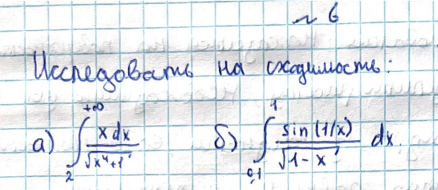 № 6
Исследовать на сходимость:
а) ∫₂^{+∞} x dx / √(x⁴+1) б) ∫₀,₁^1 sin(1/x) / √(1-x) dx.